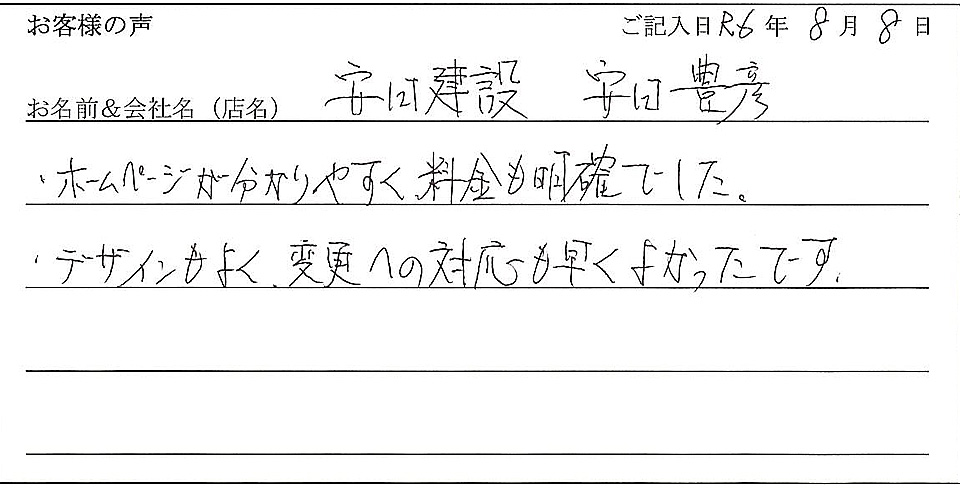 お客様の声 ご記入日 R6 年 8 月 8 日
お名前&会社名（店名） 安田建設 安田豊彦
・ホームページが分かりやすく、料金も明確でした。
・デザインもよく、変更への対応も早くよかったです。